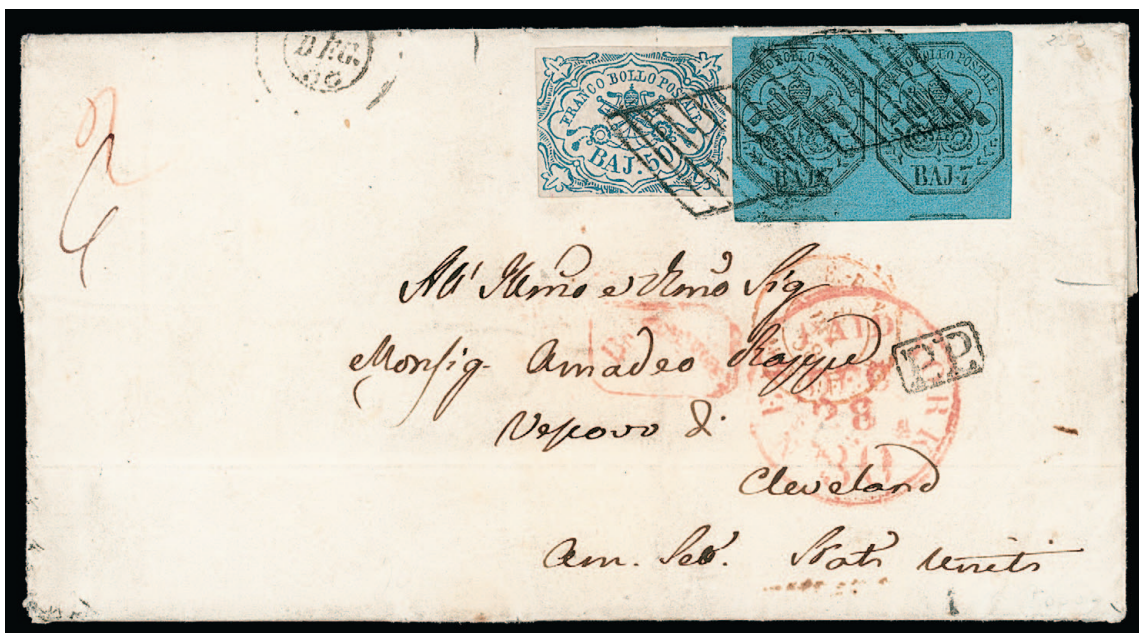 DEC.
66
FRANCO BOLLO POSTALE
BAJ. 50
FRANCO BOLLO POSTALE
BAJ. 7
FRANCO BOLLO POSTALE
BAJ. 7
All' Illmo e Rmo Sig
Monsig. Amadeo Rappe
Vescovo di
Cleveland
Am. Set. Stati Uniti
PAID
28
30
P.P.